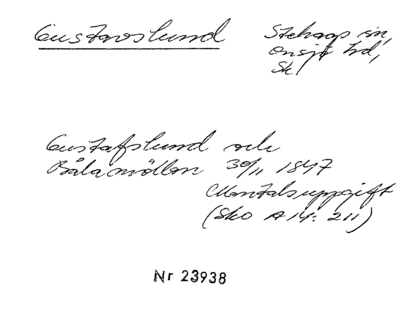 Gustavslund
Stehags sn,
Onsjö hd,
Sk.
Gustafslund och
Båla möllan 30/11 1847
Mantalsuppgift
(Sko A 14: 211)
Nr 23938